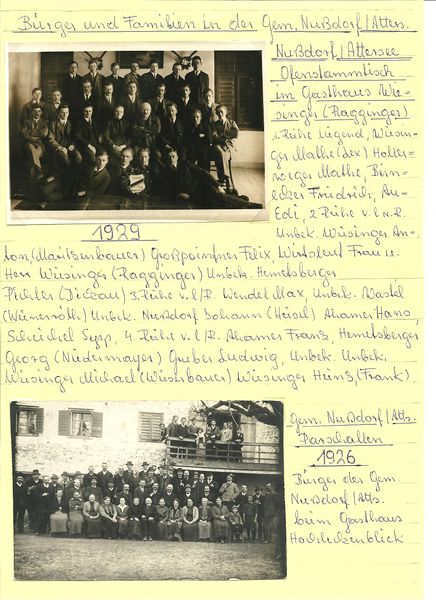 Bürger und Familien in der Gem. Nußdorf/Atters.
Nußdorf/Attersee
Ofenstammtisch
im Gasthaus Wie=
singer (Ragginger)
1. Reihe liegend, Wiesin=
ger Mathe (Lex) Holler=
woeger Mathe, Birn=
ecker Friedrich, 
Edi, 2 Reihe v. l n. R.
Unbek. Wiesinger An=
1929
ton, (Maritzenbauer) Großpointner Felix, Wirtsleut Frau u.
Herr Wiesinger (Ragginger) Unbek. Hemetsberger
Pichler 3. Reihe v. l/R. Wendel Max, Unbek. Wastel
Unbek. Nußdorf Johann (Heisel) Ahamer Hans,
Scheichel Sepp, 4. Reihe v. l/R. Ahamer Franz, Hemetsberger
Georg (Niedermayer) Gruber Ludwig, Unbek. Unbek.
Wiesinger Michael (Wieserbauer) Wiesinger Heinz, (Frank)
Gem. Nußdorf/Atts.
Parschallen
1926
Bürger der Gem.
Nußdorf/Atts.
beim Gasthaus
Hochleckenblick